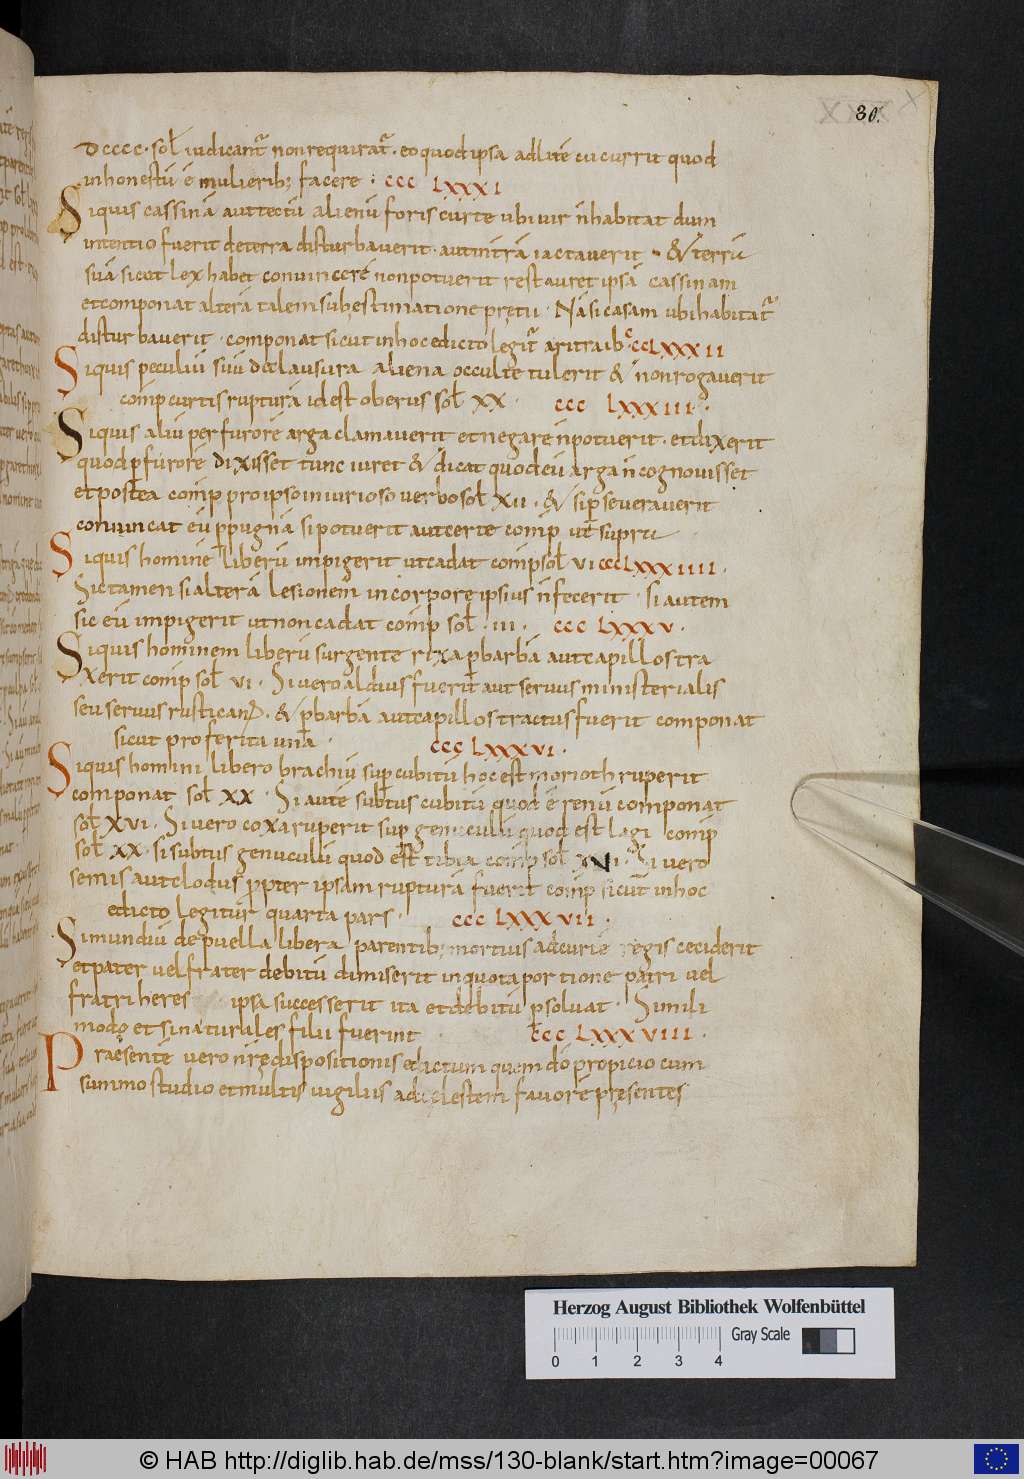 30.
dcccc. sol̄ iudicant̄ non requirat̄. eo quod ipsa ad litē cucurrit quod
inhonestū ē mulierib; facere : ccc LXXXI
Siquis cassinā aut tectū alienū foris curte ubi uir n̄ habitat dum
intentio fuerit de terra disturbauerit. aut intrā iactauerit. & terrū
suā sicut lex habet conuincerē non potuerit restauret ipsā cassinam
et componat alterā talem sub estimatione pretii. Nā si casam ubi habitat̄
disturbauerit. componat sicut in hoc edicto legit̄ aritraib. cccLXXXII
Siquis peculiū suū de clausura aliena occulte tulerit & non rogauerit
comp̄ curtis rupturā id est oberus sol̄ XX. ccc LXXXIII.
Siquis aliū per furorē arga clamauerit et negare n̄ potuerit. et dixerit
quod p̄ furorē dixisset tunc iuret & dicat quod eū arga n̄ cognouisset
et postea comp̄ pro ipso iniurioso uerbo sol̄ XII. & si p̄seuerauerit
conuincat eū p̄ pugnā si potuerit aut certe comp̄ ut supra
Siquis hominē liberū impigerit ut cadat comp̄ sol̄ VI cccLXXXIIII.
Sic tamen si alterā lesionem in corpore ipsius n̄ fecerit. si autem
sic eū impigerit ut non cadat comp̄ sol̄. III. ccc LXXXV.
Siquis hominem liberū surgente rixa p̄ barbā aut capillos tra
xerit comp̄ sol̄ VI. Si uero aldius fuerit aut seruus ministerialis
seu seruus rusticanus. & p̄ barbā aut capillos tractus fuerit componat
sicut pro ferita unā. ccc LXXXVI.
Siquis homini libero brachiū sup̄ cubitū hoc est morioth ruperit
componat sol̄ XX. Si autē subtus cubitū quod ē renū componat
sol̄ XVI. Si uero coxa ruperit sup̄ genuculū quod est lagi comp̄
sol̄ XX. si subtus genuculū quod est tibia comp̄ sol̄ XVI. Si uero
semis aut clodus p̄pter ipsam rupturā fuerit comp̄ sicut in hoc
edicto legitur quarta pars. ccc LXXXVII.
Si mundiū de puella libera parentib; mortuis ad curtē regis ceciderit
et pater uel frater debitū dimiserit in quota portione patri uel
fratri heres ipsa successerit ita et debitū p̄soluat. Simili
modo et si naturales filii fuerint ccc LXXXVIII.
Praesentē uero nrē dispositionis edictum quem dō propicio cum
summo studio et multis uigiliis ad celestem fauorē presentes
Herzog August Bibliothek Wolfenbüttel
Gray Scale
0 1 2 3 4
© HAB http://diglib.hab.de/mss/130-blank/start.htm?image=00067